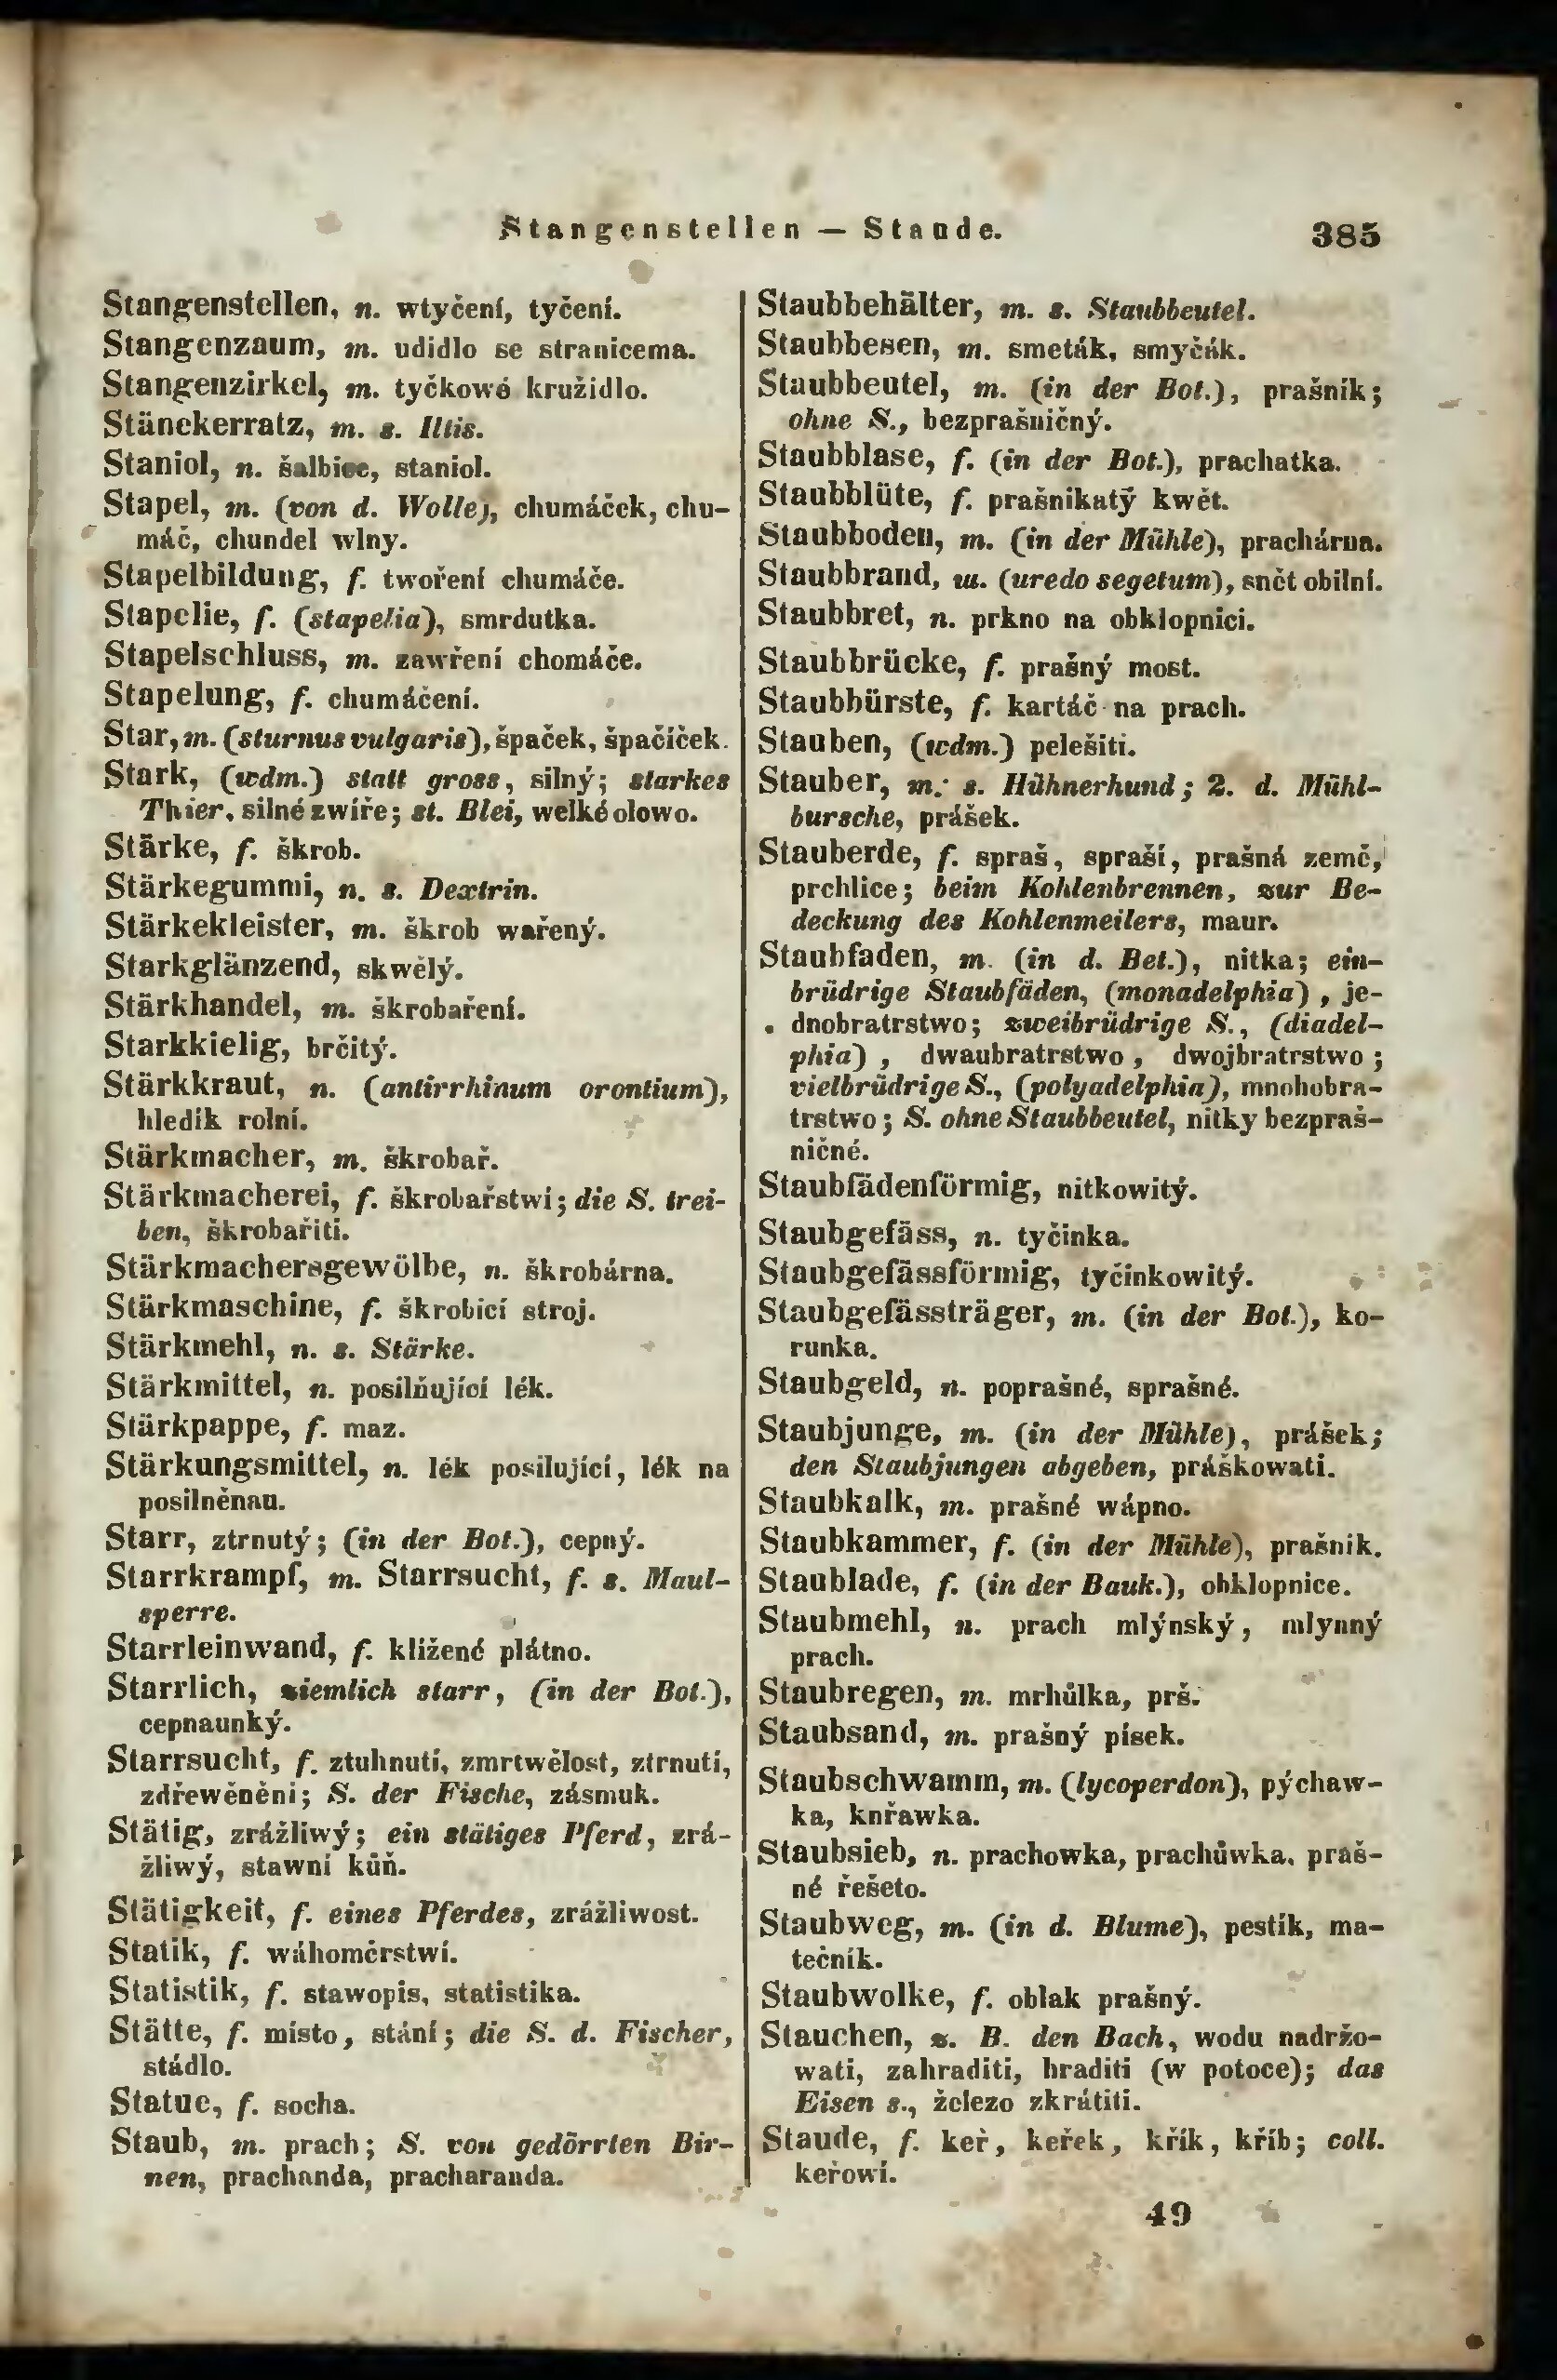 Stangenstellen — Staude.
385
Stangenstellen, n. wtyčení, tyčení.
Stangenzaum, m. udidlo se stranicema.
Stangenzirkel, m. tyčkowé kružidlo.
Stänckerratz, m. s. Iltis.
Staniol, n. šalbice, staniol.
Stapel, m. (von d. Wolle), chumáček, chu-
máč, chundel wlny.
Stapelbildung, f. twoření chumáče.
Stapelie, f. (stapelia), smrdutka.
Stapelschluss, m. zawření chomáče.
Stapelung, f. chumáčení.
Star, m. (sturnus vulgaris), špaček, špačíček.
Stark, (wdm.) statt gross, silný; starkes
Thier, silné zwíře; st. Blei, welké olowo.
Stärke, f. škrob.
Stärkegummi, n. s. Dextrin.
Stärkekleister, m. škrob wařený.
Starkglänzend, skwělý.
Stärkhandel, m. škrobaření.
Starkkielig, brčitý.
Stärkkraut, n. (antirrhinum orontium),
hledík rolní.
Stärkmacher, m. škrobař.
Stärkmacherei, f. škrobařstwí; die S. trei-
ben, škrobařiti.
Stärkmachersgewölbe, n. škrobárna.
Stärkmaschine, f. škrobicí stroj.
Stärkmehl, n. s. Stärke.
Stärkmittel, n. posilňující lék.
Stärkpappe, f. maz.
Stärkungsmittel, n. lék posilující, lék na
posilněnau.
Starr, ztrnutý; (in der Bot.), cepný.
Starrkrampf, m. Starrsucht, f. s. Maul-
sperre.
Starrleinwand, f. klížené plátno.
Starrlich, ziemlich starr, (in der Bot.),
cepnaunký.
Starrsucht, f. ztuhnutí, zmrtwělost, ztrnutí,
zdřewěnění; S. der Fische, zásmuk.
Stätig, zrážliwý; ein stätiges Pferd, zrá-
žliwý, stawní kůň.
Stätigkeit, f. eines Pferdes, zrážliwost.
Statik, f. wáhoměrstwí.
Statistik, f. stawopis, statistika.
Stätte, f. místo, stání; die S. d. Fischer,
stádlo.
Statue, f. socha.
Staub, m. prach; S. von gedörrten Bir-
nen, prachanda, pracharanda.
Staubbehälter, m. s. Staubbeutel.
Staubbesen, m. smeták, smyčák.
Staubbeutel, m. (in der Bot.), prašník;
ohne S., bezprašničný.
Staubblase, f. (in der Bot.), prachatka.
Staubblüte, f. prašnikatý kwět.
Staubboden, m. (in der Mühle), prachárna.
Staubbrand, m. (uredo segetum), snět obilní.
Staubbret, n. prkno na obklopnici.
Staubbrücke, f. prašný most.
Staubbürste, f. kartáč na prach.
Stauben, (wdm.) pelešiti.
Stauber, m. s. Hühnerhund; 2. d. Mühl-
bursche, prášek.
Stauberde, f. spraš, spraší, prašná země,
prchlice; beim Kohlenbrennen, zur Be-
deckung des Kohlenmeilers, maur.
Staubfaden, m. (in d. Bot.), nitka; ein-
brüdrige Staubfäden, (monadelphia), je-
dnobratrstwo; zweibrüdrige S., (diadel-
phia), dwaubratrstwo, dwojbratrstwo;
vielbrüdrige S., (polyadelphia), mnohobra-
trstwo; S. ohne Staubbeutel, nitky bezpraš-
ničné.
Staubfädenförmig, nitkowitý.
Staubgefäss, n. tyčinka.
Staubgefässförmig, tyčinkowitý.
Staubgefässträger, m. (in der Bot.), ko-
runka.
Staubgeld, n. poprašné, sprašné.
Staubjunge, m. (in der Mühle), prášek;
den Staubjungen abgeben, práškowati.
Staubkalk, m. prašné wápno.
Staubkammer, f. (in der Mühle), prašník.
Staublade, f. (in der Bauk.), obklopnice.
Staubmehl, n. prach mlýnský, mlynný
prach.
Staubregen, m. mrhůlka, prš.
Staubsand, m. prašný písek.
Staubschwamm, m. (lycoperdon), pýchaw-
ka, knřawka.
Staubsieb, n. prachowka, prachůwka, praš-
né řešeto.
Staubweg, m. (in d. Blume), pestík, ma-
tečník.
Staubwolke, f. oblak prašný.
Stauchen, z. B. den Bach, wodu nadržo-
wati, zahraditi, hraditi (w potoce); das
Eisen s., železo zkrátiti.
Staude, f. keř, keřek, křík, kříb; coll.
keřowí.
49